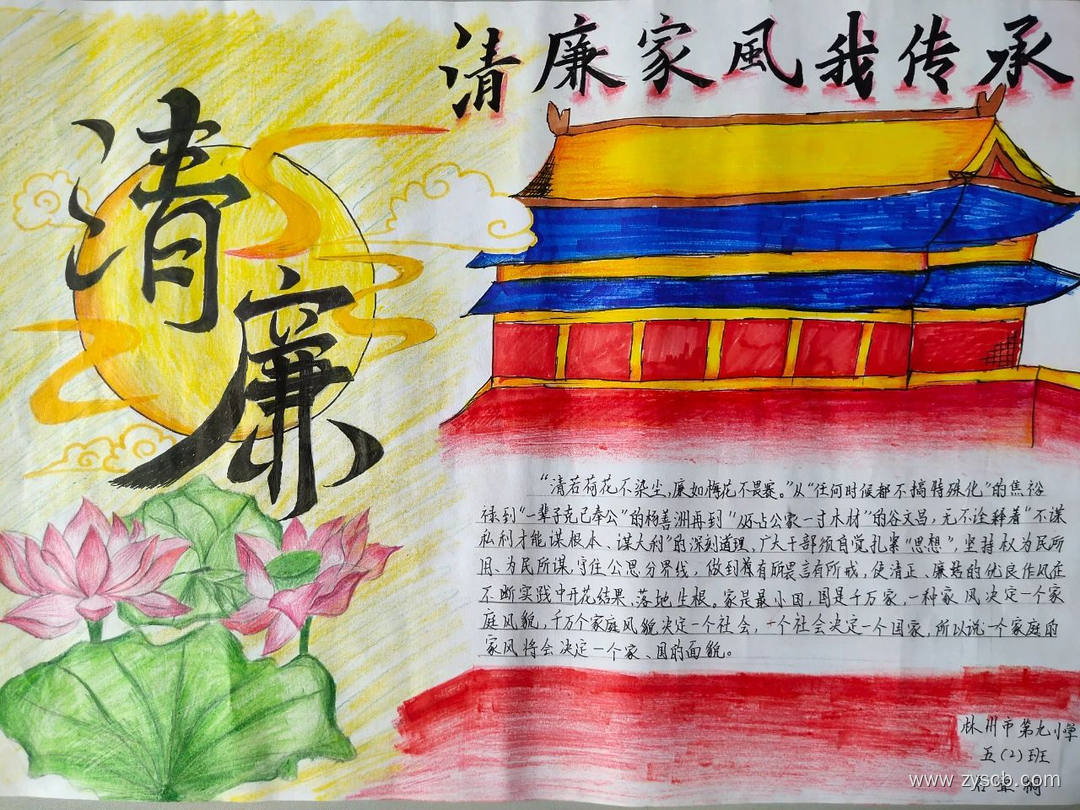 清廉家風我传承
清
廉
“清若荷花不染尘,廉如梅花不畏寒。”从“任何时候都不搞特殊化”的焦裕
禄到“一辈子克己奉公”的杨善洲再到“不占公家一寸木材”的谷文昌,无不诠释着“不谋
私利才能谋根本、谋大利”的深刻道理、广大干部须自觉扎紧“思想”,坚持权为民所
用、为民所谋,守住公思分界线,做到善有所畏言有所戒,使清正、廉洁的优良作风在
不断实践中开花结果,落地生根。家是最小国,国是千万家,一种家风决定一个家
庭风貌,千万个家庭风貌决定一个社会,一个社会决定一个国家,所以说一个家庭的
家风将会决定一个家、国的面貌。
林州市第九小学
五(2)班
www.zyscb.com